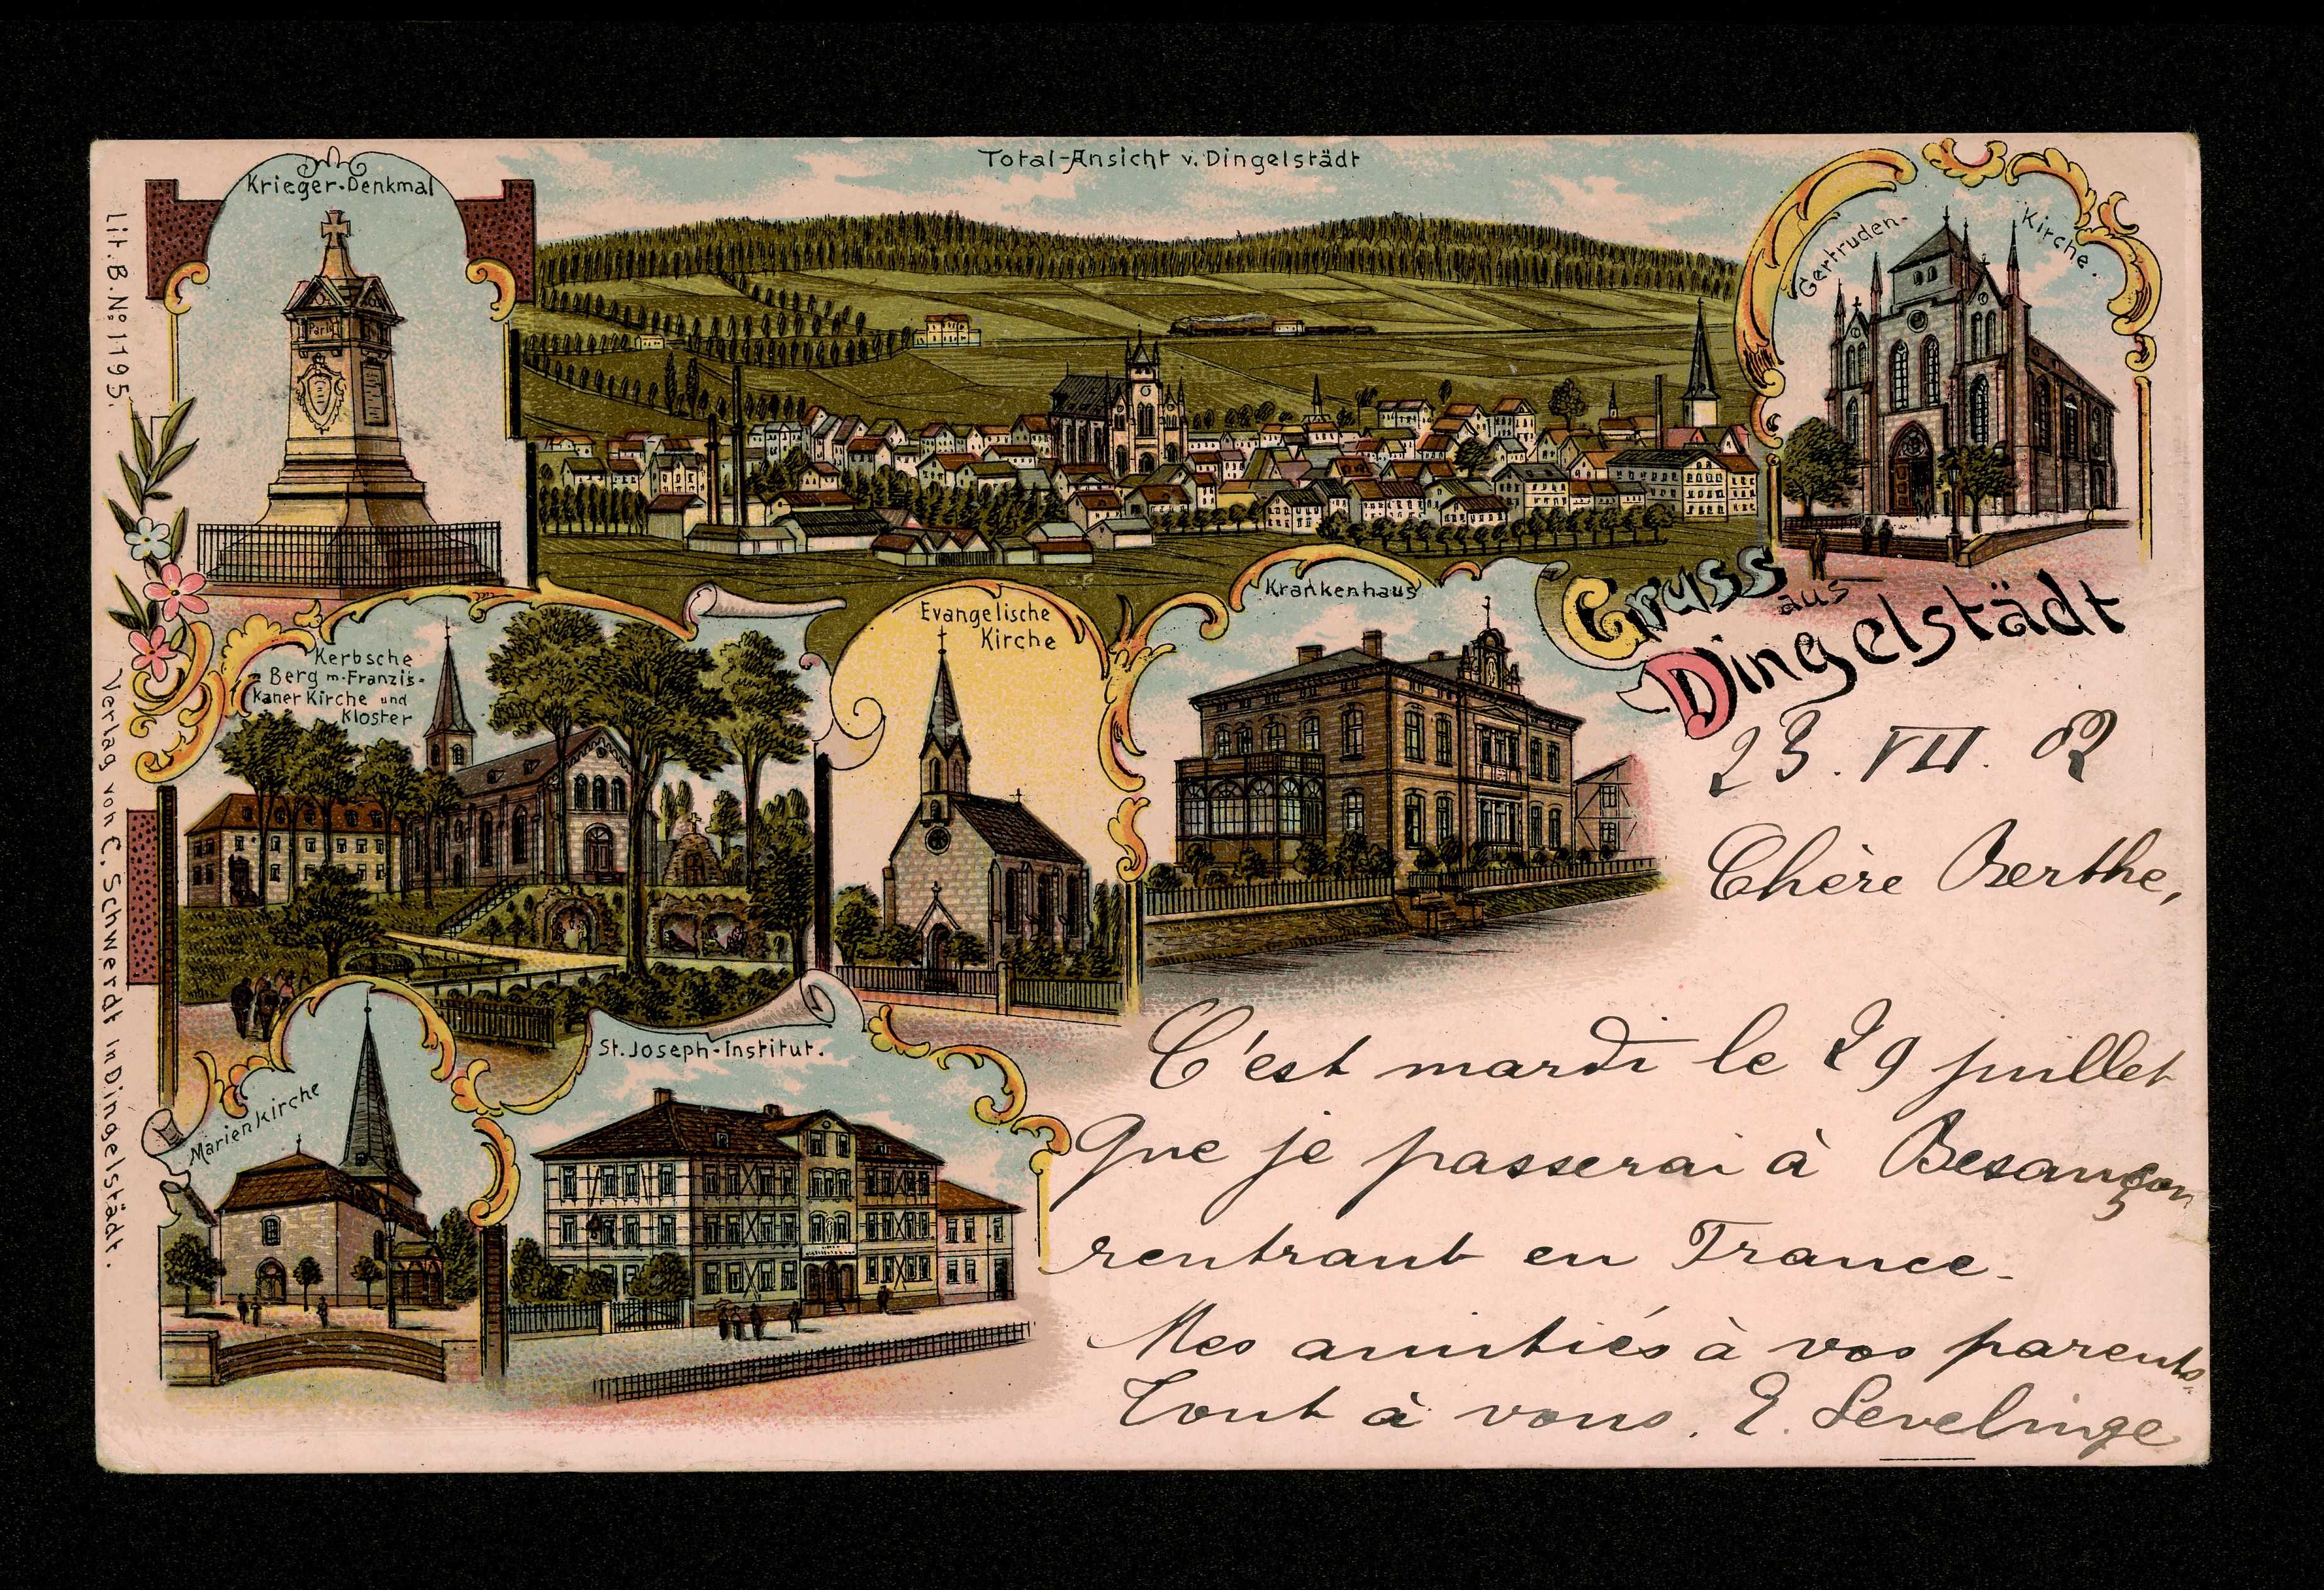 Total-Ansicht v. Dingelstädt
Krieger-Denkmal
Paris
Gertruden-Kirche.
Lit. B. No 1195.
Gruss
aus
Dingelstädt
Krankenhaus
Evangelische
Kirche
Kerbsche
Berg m. Franzis-
kaner Kirche und
Kloster
Verlag von E. Schwerdt in Dingelstädt.
St. Joseph-Institut.
Marienkirche
23. VII. 02
Chère Berthe,
C'est mardi le 29 juillet
que je passerai à Besançon
rentrant en France.
Mes amitiés à vos parents.
Tout à vous. E. Levelinge